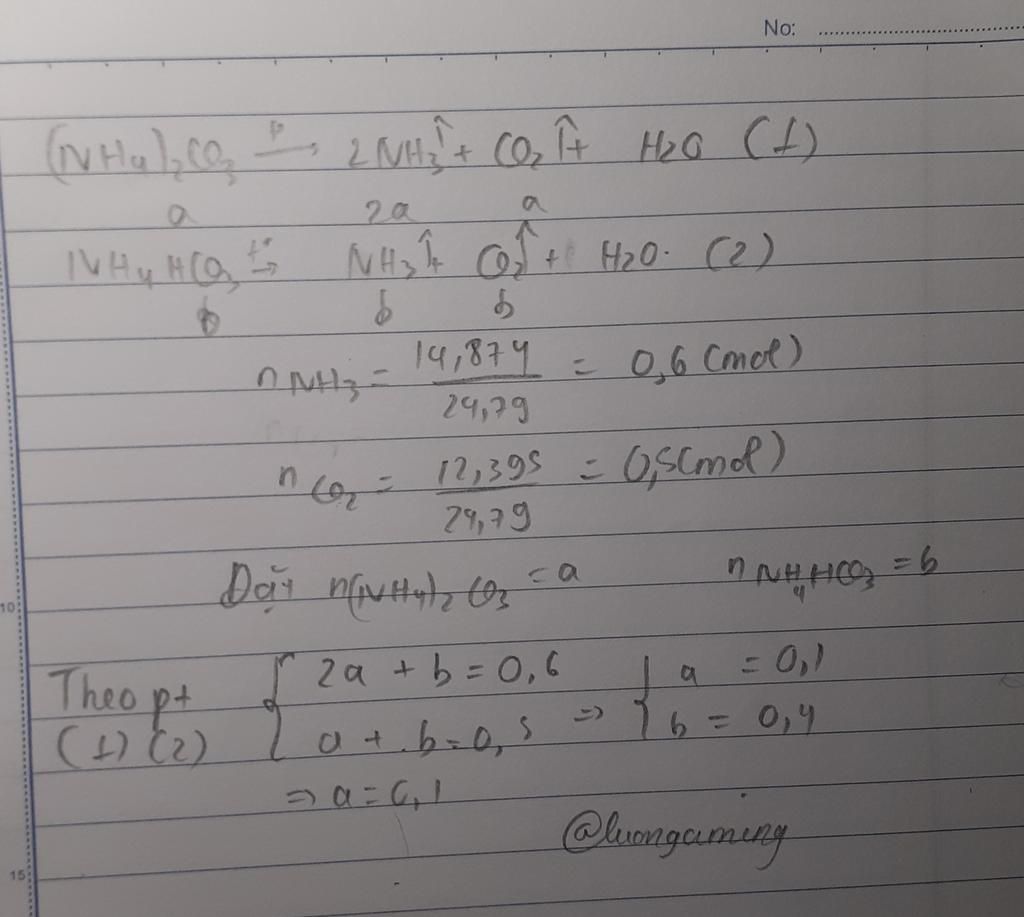 No: ........................
(NH4)2CO3 —t°→ 2NH3↑ + CO2↑ + H2O (1)
a 2a a
NH4HCO3 —t°→ NH3↑ + CO2↑ + H2O. (2)
b b b
nNH3 = 14,874 / 24,79 = 0,6 (mol)
nCO2 = 12,395 / 24,79 = 0,5 (mol)
Đặt n(NH4)2CO3 = a nNH4HCO3 = b
10
Theo pt { 2a + b = 0,6 { a = 0,1
(1) (2) a + b = 0,5 => b = 0,4
=> a = 0,1
@luongaming
15